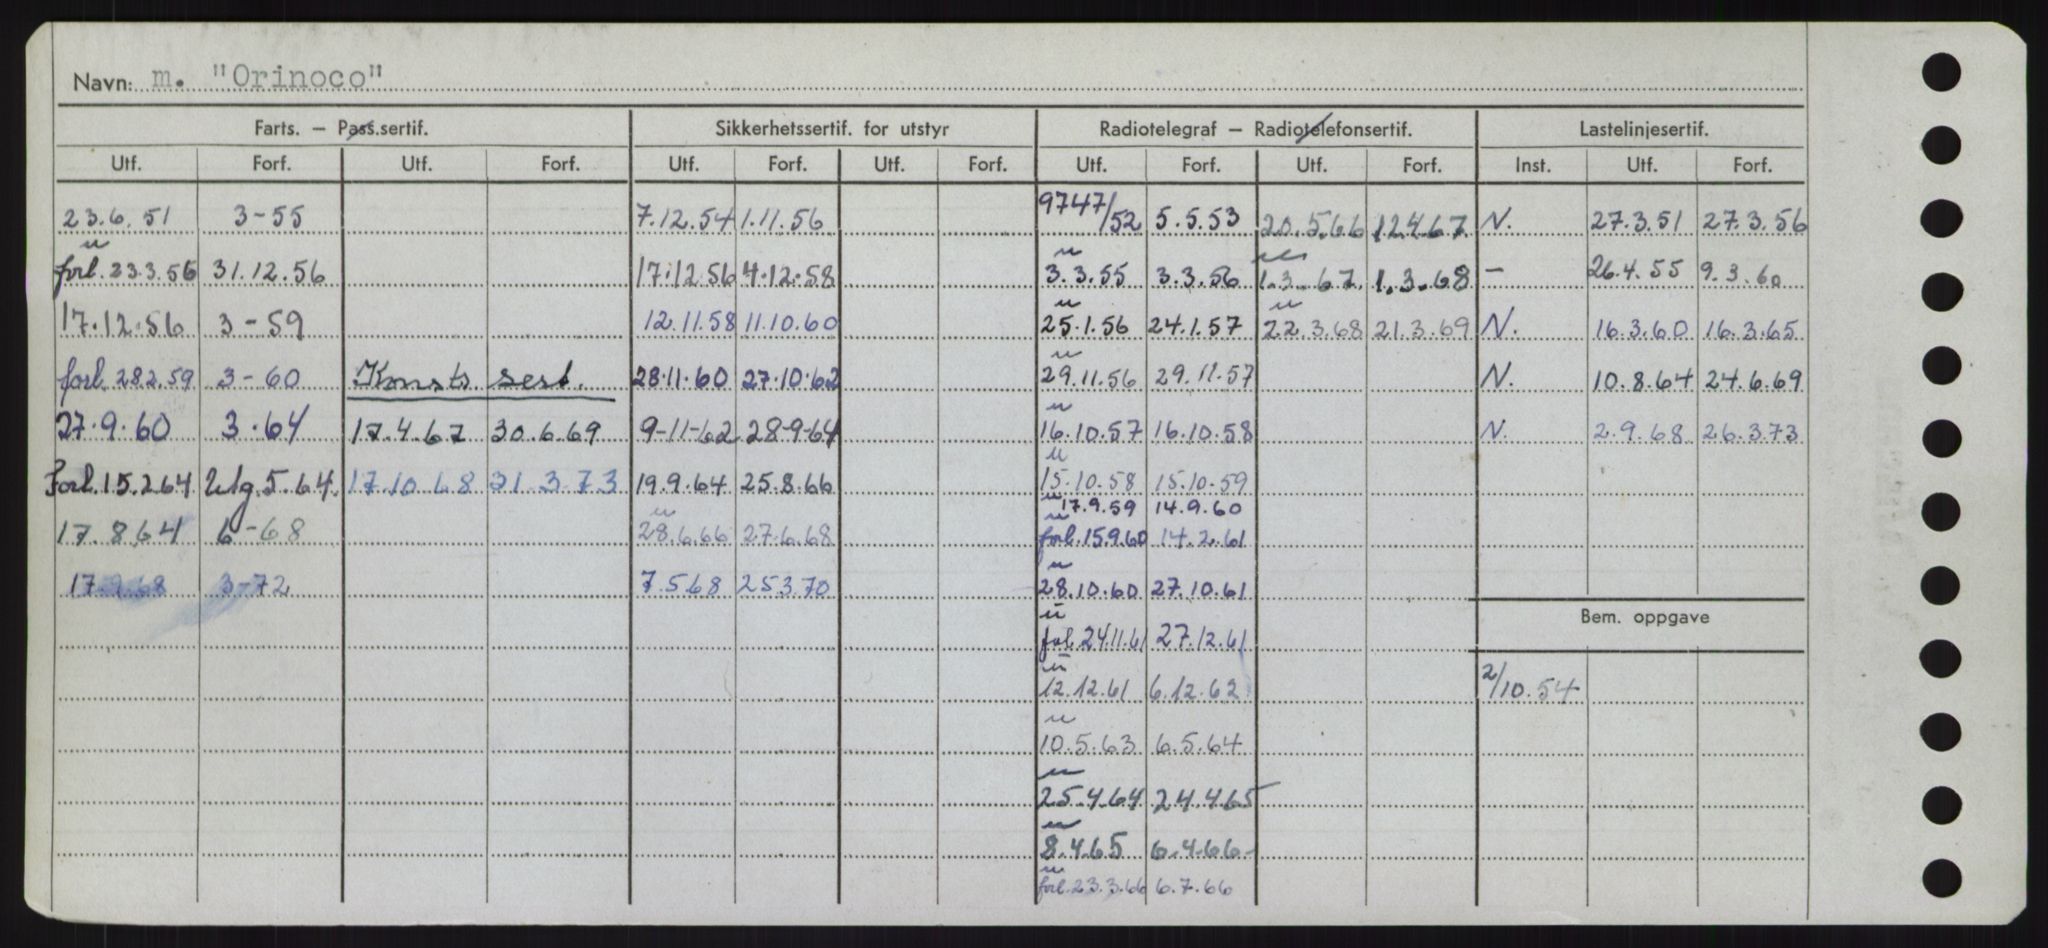 Navn: m. "Orinoco"
Farts. – Pass.sertif. Sikkerhetssertif. for utstyr Radiotelegraf – Radiotelefonsertif. Lastelinjesertif.
Utf. Forf. Utf. Forf. Utf. Forf. Utf. Forf. Utf. Forf. Utf. Forf. Inst. Utf. Forf.
23.6.51 3-55 7.12.54 1.11.56 9747/52 5.5.53 20.5.66 12.4.67. N. 27.3.51 27.3.56
u
forl. 23.3.56 31.12.56 17.12.56 4.12.58 3.3.55 3.3.56 1.3.67. 1.3.68 – 26.4.55 9.3.60
u u
17.12.56 3-59 12.11.58 11.10.60 25.1.56 24.1.57 22.3.68 21.3.69 N. 16.3.60 16.3.65
u
forl. 28.2.59 3-60 Konstr. sert. 28.11.60 27.10.62 29.11.56 29.11.57 N. 10.8.64 24.6.69
u
27.9.60 3.64 17.4.67 30.6.69 9-11-62 28-9-64 16.10.57 16.10.58 N. 2.9.68 26.3.73
u
Forl. 15.2.64 Utg. 5.64. 17.10.68 31.3.73 19.9.64 25.8.66 15.10.58 15.10.59
u 17.9.59 14.9.60
u u
17.8.64 6-68 28.6.66 27.6.68 forl. 15.9.60 14.2.61
u
17.9.68 3-72 7.5.68 25.3.70 28.10.60 27.10.61
Bem. oppgave
u
forl. 24.11.61 27.12.61
u
12.12.61 6.12.62 2/10.54
u
10.5.63 6.5.64
u
25.4.64 24.4.65
u
8.4.65 6.4.66
u
forl. 23.3.66 6.7.66